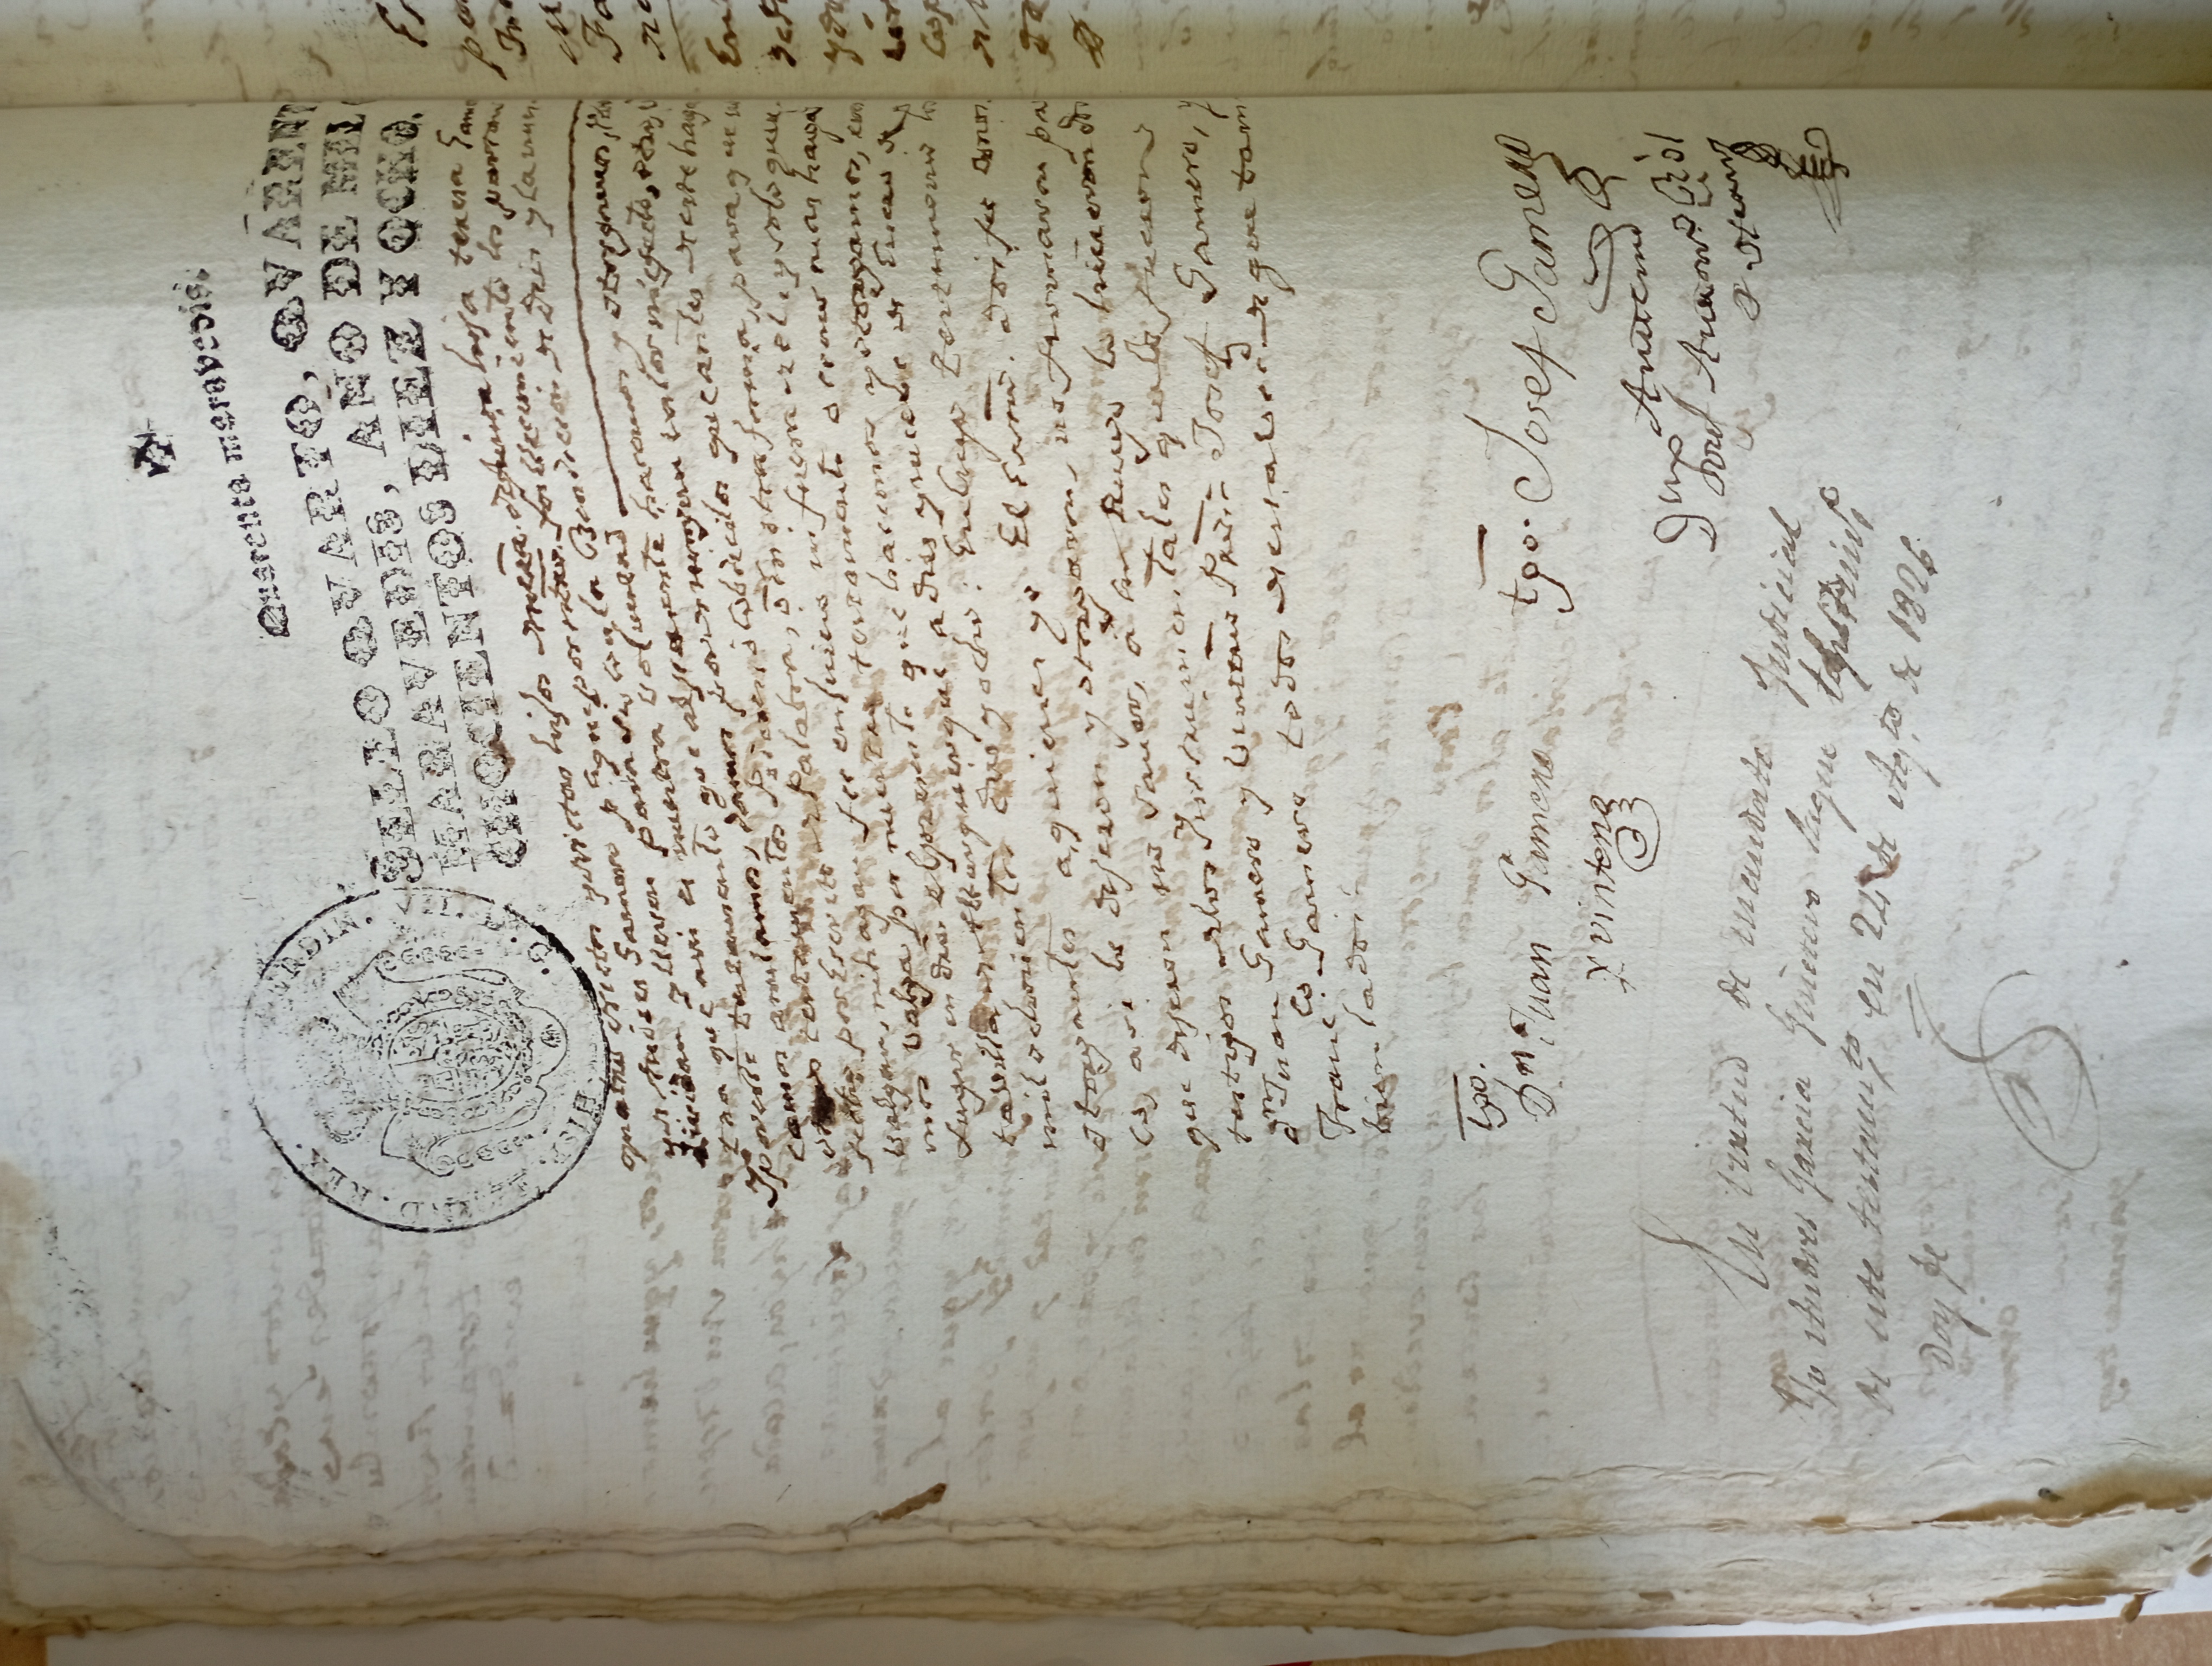 Quarenta maravedis.
HISP. ET IND. REX.
FERDIN. VII. D. G.
SELLO QVARTO, QVARENT
MARAVEDIS, AÑO DE MIL
CHOCIENTOS DIEZ Y OCHO.
quatro nietos y vietos hijos de nrã. difunta hija teresa Game
y de Andres Gamero pª. que por nrõ. fallecimiento los partan
dividan y lleven para si con la Bendicion de Dios y la nues
tra que asi es nuestra voluntad
Y por este testamento que al presente hacemos y otorgamos, Revo
camos anulamos, damos por de ningun valor ni efecto, otro,
otros testamentos Poderes, ó Cobdicilos que antes de este haya
fecho por Escrito de Palabra, ó en otra forma, para que no
valgan, ni hagan fee en Juicio ni fuera de él, y solo quere
mos valga por nuestro testamento o como mas haya
Lugar en dro. el presente que hacemos y otorgamos, en es
ta villa de Alburquerque a dies y nueve de Enero de
mil ochocientos dies y ocho: En cuyo Testimonio los
otorgantes a quienes yo El Essnõ. doi fee conos
co, asi lo dijeron y otorgaron, no firmaron por
que dijeron no saver, á su Ruego lo hicieron dos
testigos de los Ynstrumentales que lo fueron
dn Juan Gamero y Vinteño Josef Gamero, y
Francco. Gamero todos de esta de que tam
bien la doi=
tgo.
Dn Juan Gamero
y vinteno
tgo. Josef Gamero
Antemi
Dn Josef
En virtud de mandato Judicial
Yo Andres Garcia Ginetero saque
de este testamto, en 24 de Agto. de 1826.
Doy fe